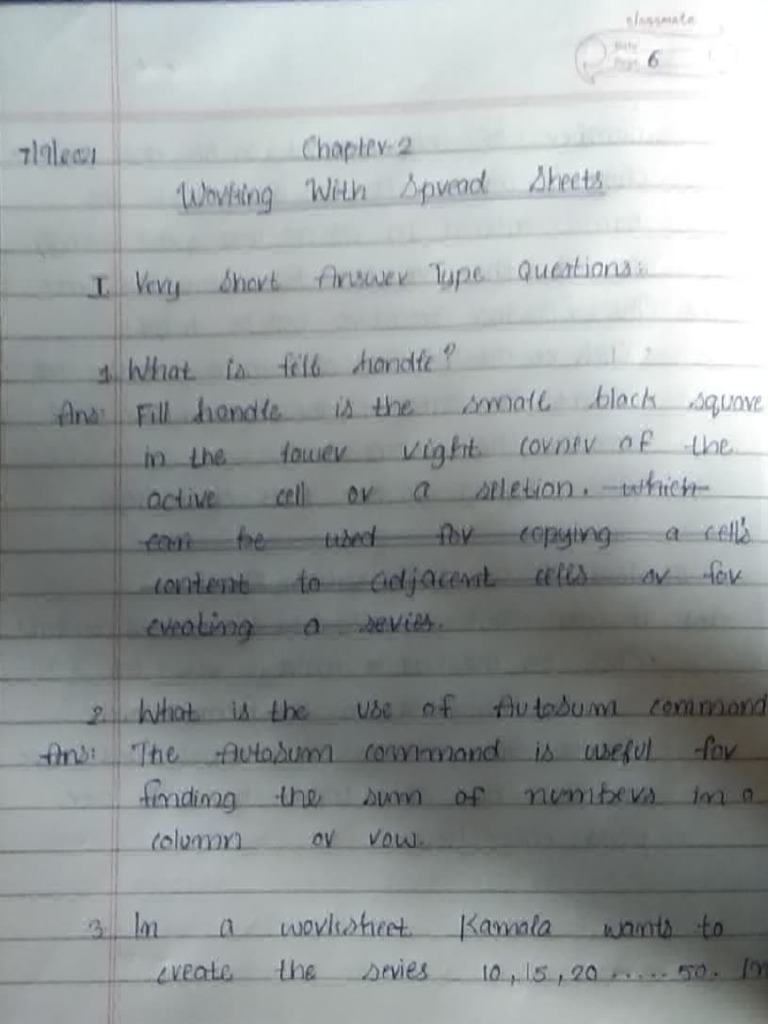 classmate
Date
Page 6
Chapter-2
Working With Spread Sheets
I Very Short Answer Type Questions:
1. What is fill handle?
Ans: Fill handle is the small black square
in the lower right corner of the
active cell or a seletion. which
can be used for copying a cell's
content to adjacent cells or for
creating a series.
2. What is the use of AutoSum command
Ans: The AutoSum command is useful for
finding the sum of numbers in a
column or row.
3. In a worksheet Kamala wants to
create the series 10, 15, 20 ..... 50. In